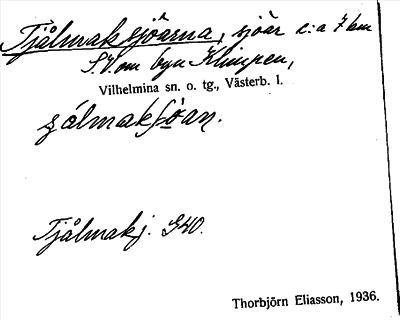 Tjålmaksjöarna, sjöar c:a 7 km
S.V. om byn Klimpen,
Vilhelmina sn. o. tg., Västerb. l.
Tjålmakj. 940.
Thorbjörn Eliasson, 1936.